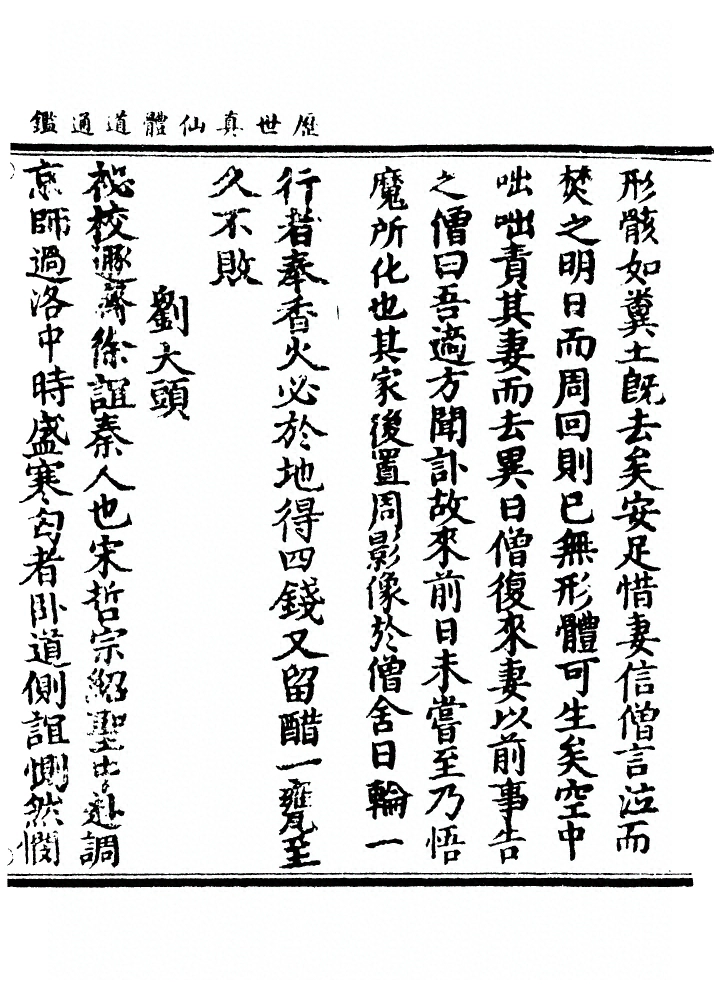 歷世真仙體道通鑑
形骸如糞土既去矣安足惜妻信僧言泣而
焚之明日而周回則已無形體可生矣空中
咄咄責其妻而去異日僧復來妻以前事告
之僧曰吾適方聞訃故來前日未嘗至乃悟
魔所化也其家後置周影像於僧舍日輪一
行者奉香火必於地得四錢又留醋一甕至
久不敗
劉大頭
祕校遯齋徐誼秦人也宋哲宗紹聖赴調
京師過洛中時盛寒匄者卧道側誼惻然憫